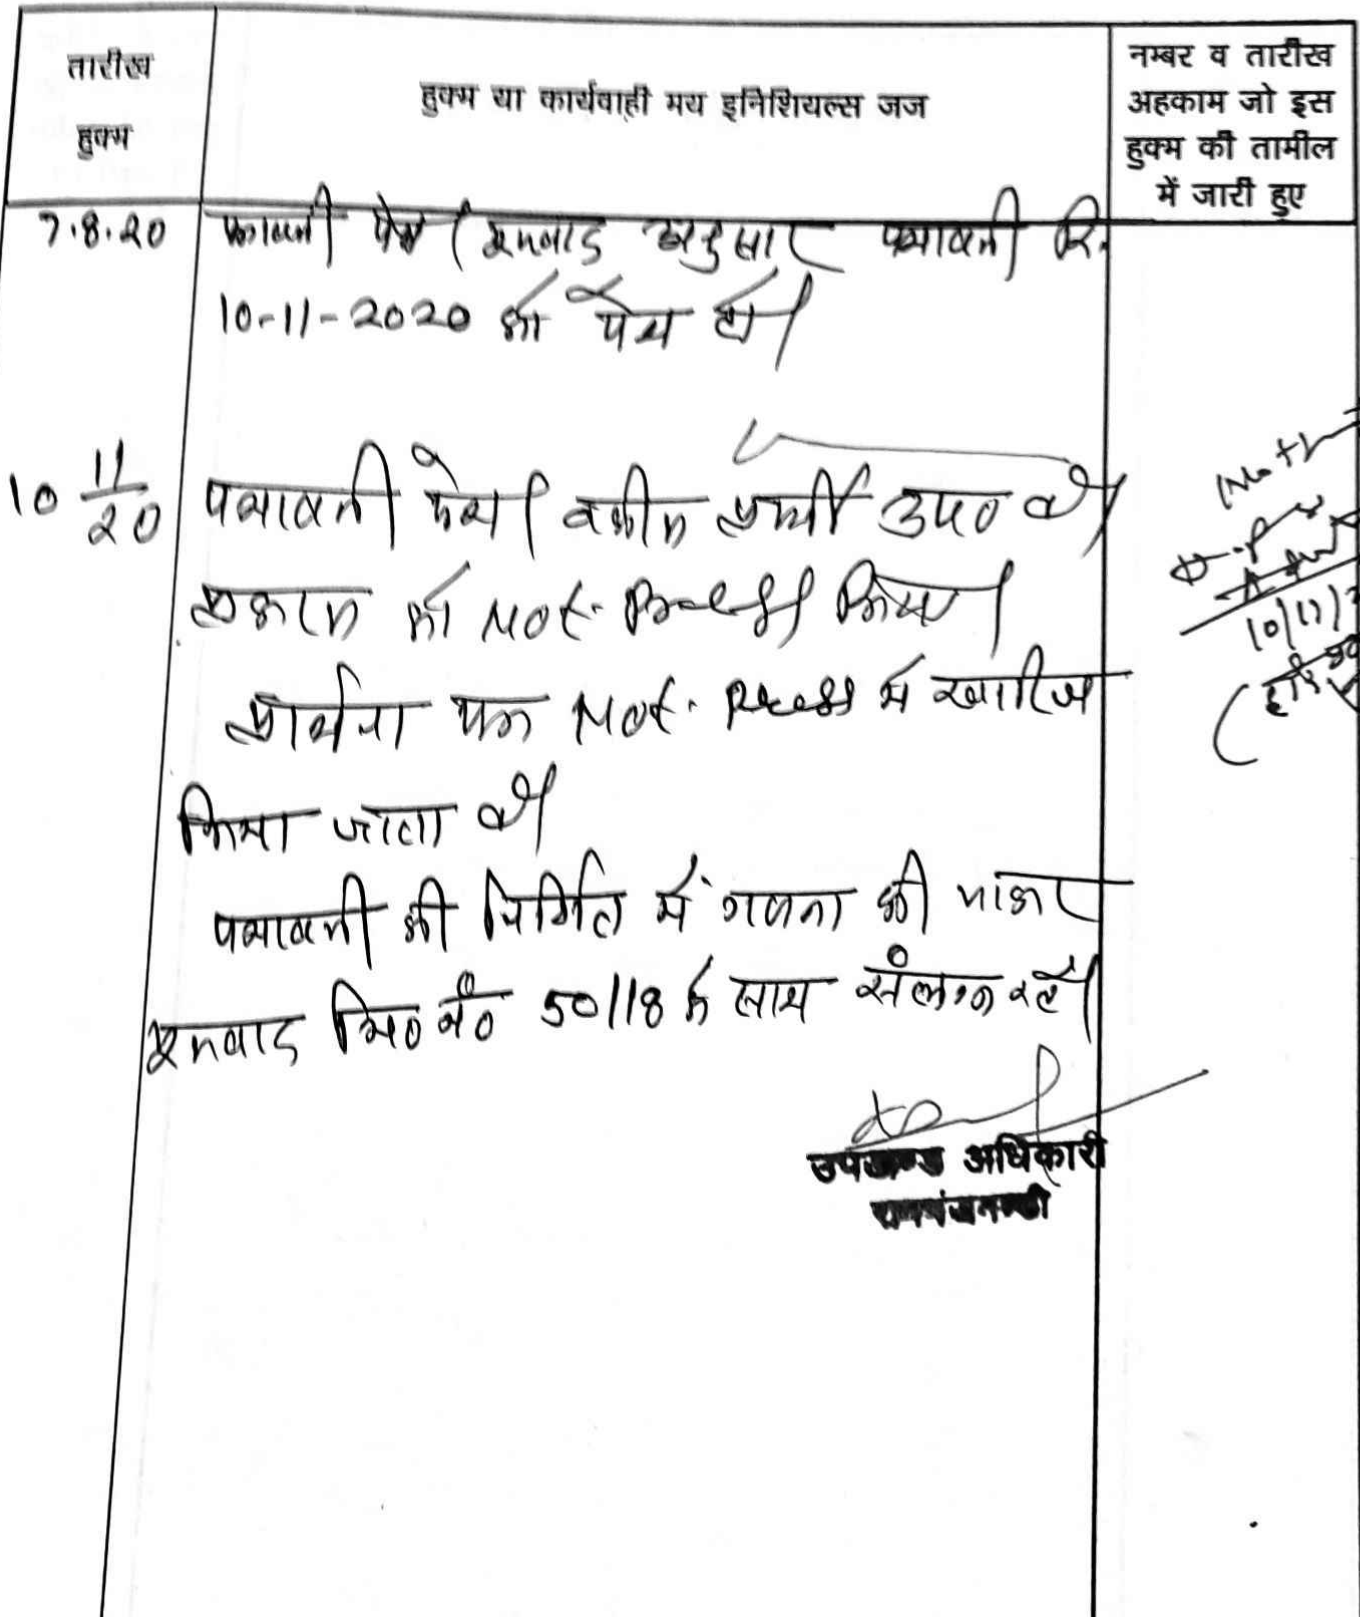 तारीख
हुक्म
हुक्म या कार्यवाही मय इनिशियल्स जज
नम्बर व तारीख
अहकाम जो इस
हुक्म की तामील
में जारी हुए
7.8.20 पत्रावली पेश। मूलवाद अनुसार पत्रावली दि.
10-11-2020 को पेश हो।
10 11/20 पत्रावली पेश। वकील प्रार्थी उप० है।
प्रकरण को Not-Press किया।
प्रार्थना पत्र Not-Press में खारिज
किया जाता है।
पत्रावली की निर्मित में गणना की जाकर
मूलवाद मि० नं० 50/18 के साथ संलग्न रहे।
उपखण्ड अधिकारी
रामगंजमण्डी
Not
10/11/